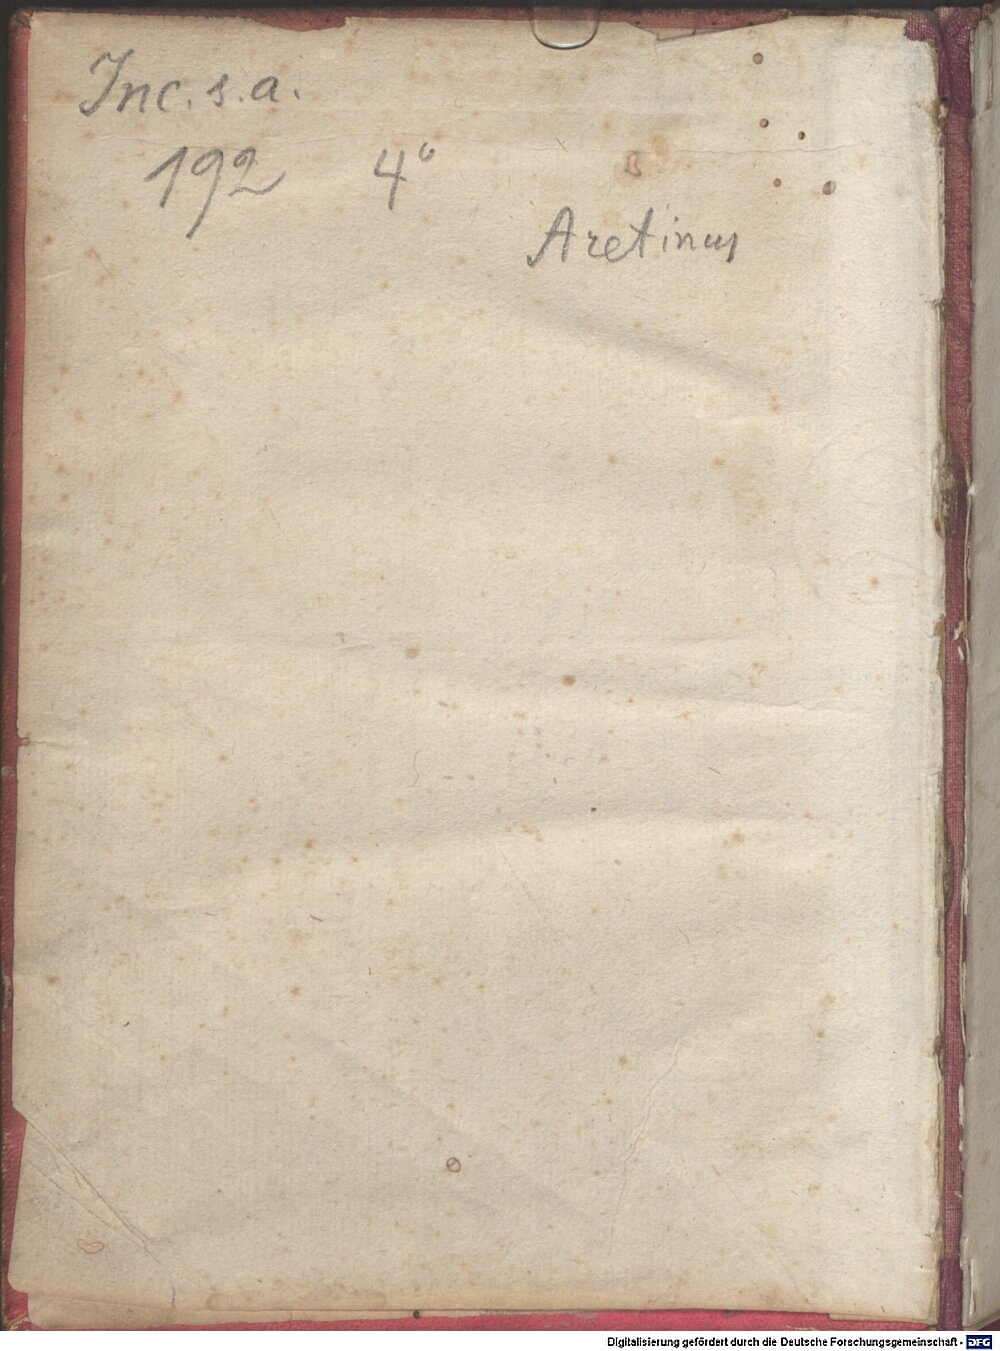 Inc. s. a.
192 4°
B
Aretinus
Digitalisierung gefördert durch die Deutsche Forschungsgemeinschaft - DFG